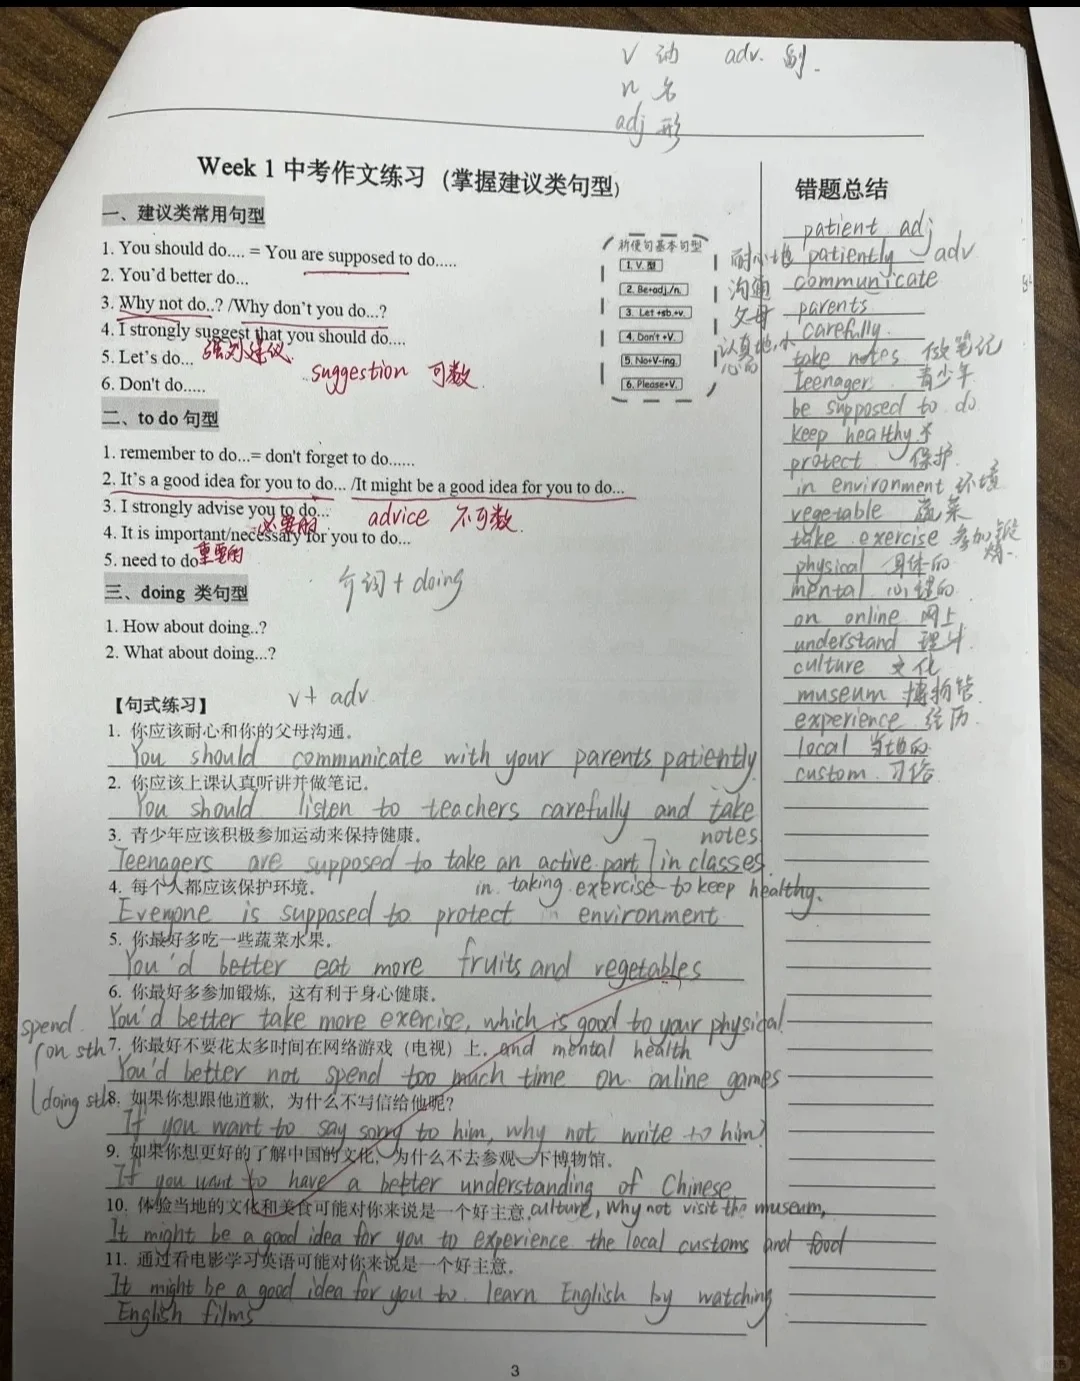 v 动 adv. 副.
n 名
adj 形
Week 1 中考作文练习（掌握建议类句型）
一、建议类常用句型
1. You should do.... = You are supposed to do.....
2. You'd better do...
3. Why not do..? /Why don't you do...?
4. I strongly suggest that you should do....
强烈建议
5. Let's do...
suggestion 可数
6. Don't do.....
祈使句基本句型
1. V. 型
2. Be+adj./n.
3. Let +sb.+v.
4. Don't +V.
5. No+V-ing.
6. Please+V.
二、to do 句型
1. remember to do...= don't forget to do......
2. It's a good idea for you to do... /It might be a good idea for you to do...
3. I strongly advise you to do...
advice 不可数
必要的
4. It is important/necessary for you to do...
重要的
5. need to do
三、doing 类句型
介词 + doing
1. How about doing..?
2. What about doing...?
【句式练习】
v + adv
1. 你应该耐心和你的父母沟通。
You should communicate with your parents patiently.
2. 你应该上课认真听讲并做笔记。
You should listen to teachers carefully and take
notes
in classes
3. 青少年应该积极参加运动来保持健康。
Teenagers are supposed to take an active part
in taking exercise to keep healthy.
4. 每个人都应该保护环境。
Everyone is supposed to protect environment
5. 你最好多吃一些蔬菜水果。
You'd better eat more fruits and vegetables
6. 你最好多参加锻炼，这有利于身心健康。
You'd better take more exercise, which is good to your physical
and mental health
7. 你最好不要花太多时间在网络游戏（电视）上。
spend
on sth
doing sth
You'd better not spend too much time on online games
8. 如果你想跟他道歉，为什么不写信给他呢？
If you want to say sorry to him, why not write to him?
9. 如果你想更好的了解中国的文化，为什么不去参观一下博物馆。
If you want to have a better understanding of Chinese
culture, why not visit the museum,
10. 体验当地的文化和美食可能对你来说是一个好主意。
It might be a good idea for you to experience the local customs and food
11. 通过看电影学习英语可能对你来说是一个好主意。
It might be a good idea for you to learn English by watching
English films
3
错题总结
patient adj
耐心地 patiently adv
沟通 communicate
父母 parents
认真地,小心 carefully
take notes 做笔记
teenager 青少年
be supposed to do
keep healthy
protect 保护
in environment 环境
vegetable 蔬菜
take exercise 参加锻炼
physical 身体的
mental 心理的
on online 网上
understand 理解
culture 文化
museum 博物馆
experience 经历
local 当地的
custom 习俗